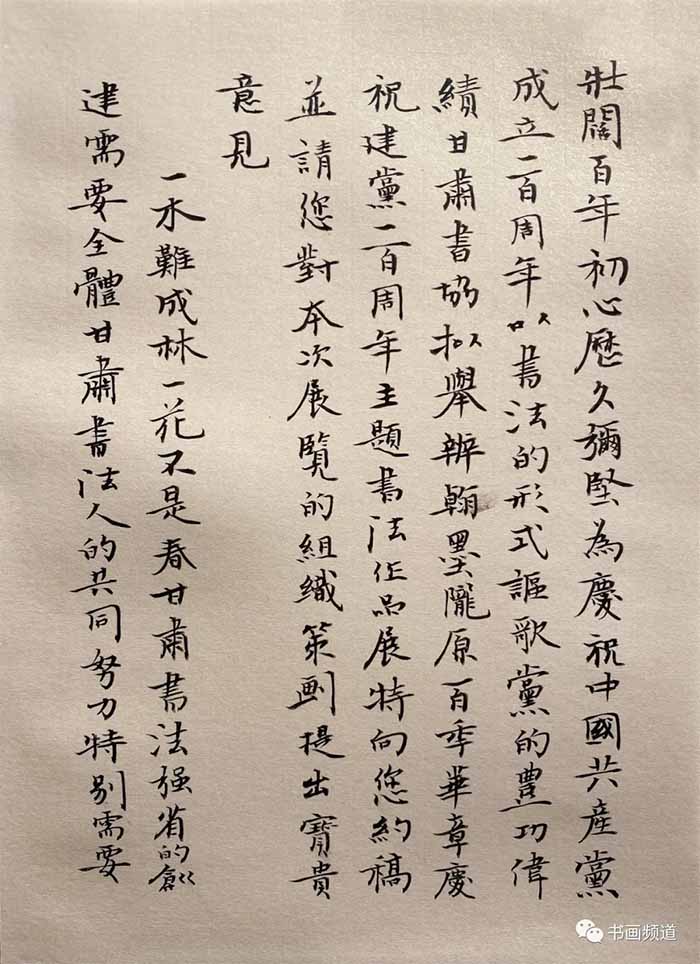 壯闊百年初心歷久彌堅為慶祝中國共產黨
成立一百周年以書法的形式謳歌黨的豐功偉
績甘肅書協拟舉辦翰墨隴原百秊華章慶
祝建黨一百周年主題書法作品展特向您約稿
並請您對本次展覽的組織策劃提出寶貴
意見
一木難成林一花不是春甘肅書法强省的創
建需要全體甘肅書法人的共同努力特别需要
书画频道